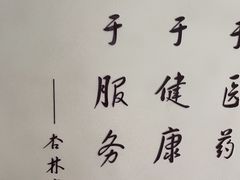 于医药
于健康
于服务
——杏林